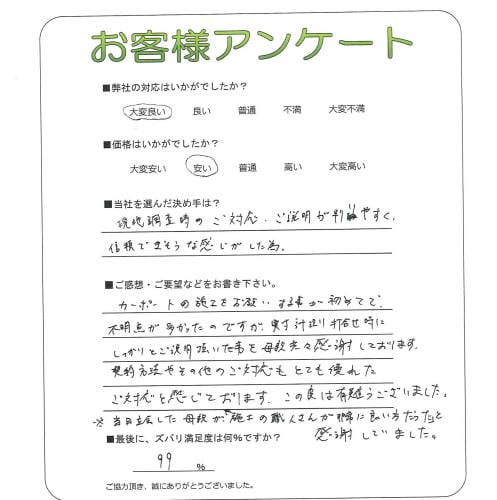 お客様アンケート
■弊社の対応はいかがでしたか?
大変良い 良い 普通 不満 大変不満
■価格はいかがでしたか?
大変安い 安い 普通 高い 大変高い
■当社を選んだ決め手は?
現地調査時のご対応・ご説明が判りやすく、
信頼できそうな感じがした為。
■ご感想・ご要望などをお書き下さい。
カーポートの施工をお願いする事が初めてで、
不明点が多かったのですが、実寸計測り打合せ時に
しっかりとご説明頂いた事を母親共々感謝しております。
契約方法やその他のご対応もとても優れた
ご対応と感じております。この度は有難うございました。
※当日立会した母親が施工の職人さんが非常に良い方だったと
感謝していました。
■最後に、ズバリ満足度は何%ですか?
99 %
ご協力頂き、誠にありがとうございました。